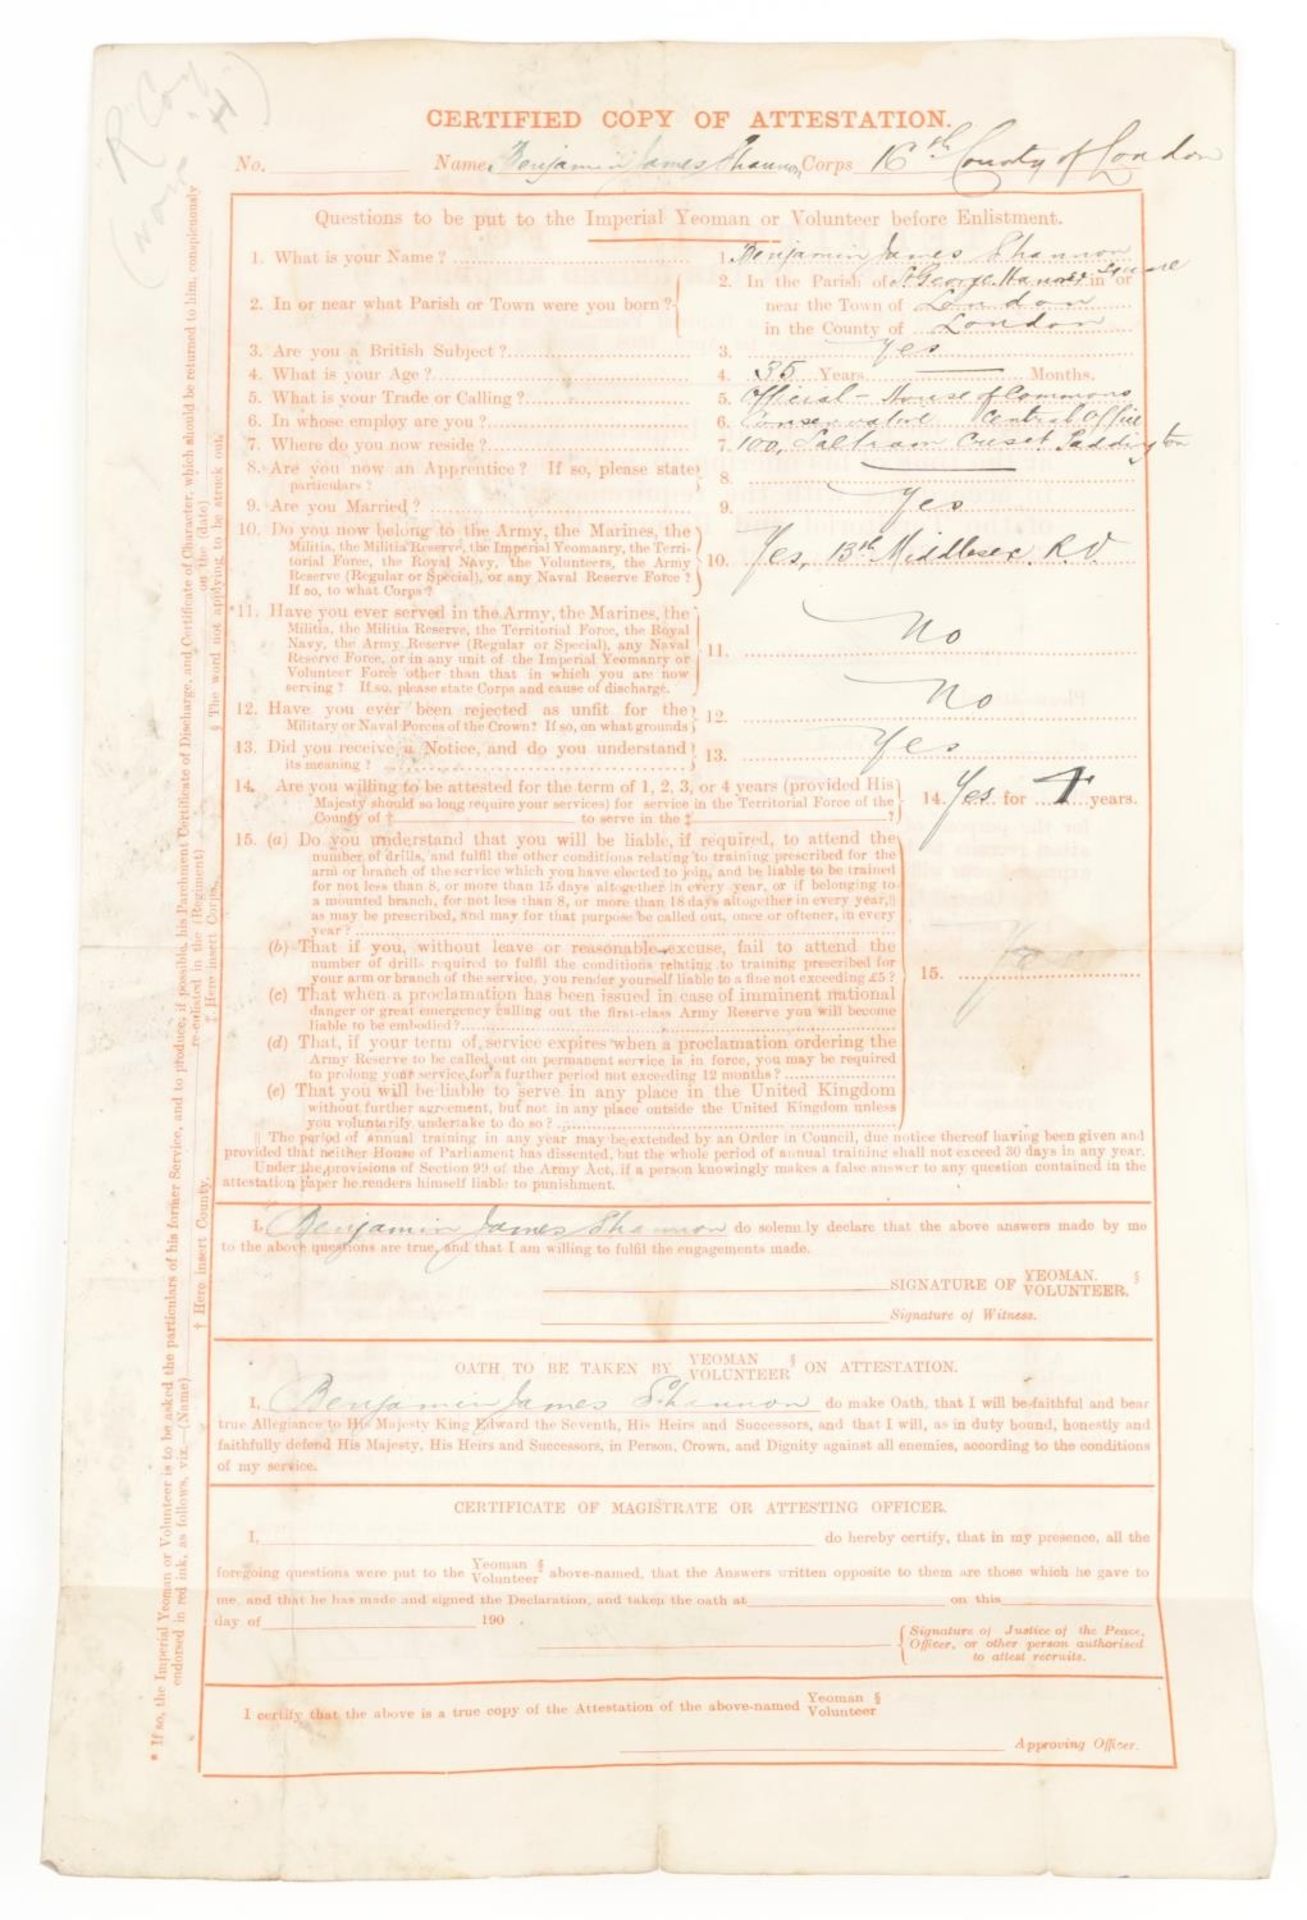 CERTIFIED COPY OF ATTESTATION.
No. Name, Benjamin James Shannon Corps 16th County of London
Questions to be put to the Imperial Yeoman or Volunteer before Enlistment.
1. What is your Name? 1. Benjamin James Shannon
2. In or near what Parish or Town were you born? 2. In the Parish of St George Hanover Square in or
near the Town of London
in the County of London
3. Are you a British Subject? 3. Yes
4. What is your Age? 4. 35 Years — Months.
5. What is your Trade or Calling? 5. Official - House of Commons
6. In whose employ are you? 6. Conservative Central Office
7. Where do you now reside? 7. 100, Saltram Cresct. Paddington
8. Are you now an Apprentice? If so, please state 8. —
particulars?
9. Are you Married? 9. Yes
10. Do you now belong to the Army, the Marines, the
Militia, the Militia Reserve, the Imperial Yeomanry, the Terri-
torial Force, the Royal Navy, the Volunteers, the Army 10. Yes, 13th Middlesex. R.V.
Reserve (Regular or Special), or any Naval Reserve Force?
If so, to what Corps?
*11. Have you ever served in the Army, the Marines, the
Militia, the Militia Reserve, the Territorial Force, the Royal
Navy, the Army Reserve (Regular or Special), any Naval 11. No
Reserve Force, or in any unit of the Imperial Yeomanry or
Volunteer Force other than that in which you are now
serving? If so, please state Corps and cause of discharge.
12. Have you ever been rejected as unfit for the 12. No
Military or Naval Forces of the Crown? If so, on what grounds
13. Did you receive a Notice, and do you understand 13. Yes
its meaning?
14. Are you willing to be attested for the term of 1, 2, 3, or 4 years (provided His
Majesty should so long require your services) for service in the Territorial Force of the 14. Yes for years.
County of † to serve in the ‡ ?
15. (a) Do you understand that you will be liable, if required, to attend the
number of drills, and fulfil the other conditions relating to training prescribed for the
arm or branch of the service which you have elected to join, and be liable to be trained
for not less than 8, or more than 15 days altogether in every year, or if belonging to
a mounted branch, for not less than 8, or more than 18 days altogether in every year,||
as may be prescribed, and may for that purpose be called out, once or oftener, in every
year?
(b) That if you, without leave or reasonable excuse, fail to attend the
number of drills required to fulfil the conditions relating to training prescribed for
your arm or branch of the service, you render yourself liable to a fine not exceeding £5? 15. Yes
(c) That when a proclamation has been issued in case of imminent national
danger or great emergency calling out the first-class Army Reserve you will become
liable to be embodied?
(d) That, if your term of service expires when a proclamation ordering the
Army Reserve to be called out on permanent service is in force, you may be required
to prolong your service for a further period not exceeding 12 months?
(e) That you will be liable to serve in any place in the United Kingdom
without further agreement, but not in any place outside the United Kingdom unless
you voluntarily undertake to do so?
|| The period of annual training in any year may be extended by an Order in Council, due notice thereof having been given and
provided that neither House of Parliament has dissented, but the whole period of annual training shall not exceed 30 days in any year.
Under the provisions of Section 99 of the Army Act, if a person knowingly makes a false answer to any question contained in the
attestation paper he renders himself liable to punishment.
I, Benjamin James Shannon do solemnly declare that the above answers made by me
to the above questions are true, and that I am willing to fulfil the engagements made.
SIGNATURE OF YEOMAN. VOLUNTEER. §
Signature of Witness.
OATH TO BE TAKEN BY YEOMAN VOLUNTEER § ON ATTESTATION.
I, Benjamin James Shannon do make Oath, that I will be faithful and bear
true Allegiance to His Majesty King Edward the Seventh, His Heirs and Successors, and that I will, as in duty bound, honestly and
faithfully defend His Majesty, His Heirs and Successors, in Person, Crown, and Dignity against all enemies, according to the conditions
of my service.
CERTIFICATE OF MAGISTRATE OR ATTESTING OFFICER.
I, do hereby certify, that in my presence, all the
foregoing questions were put to the Yeoman Volunteer § above-named, that the Answers written opposite to them are those which he gave to
me, and that he has made and signed the Declaration, and taken the oath at on this
day of 190 .
Signature of Justice of the Peace,
Officer, or other person authorised
to attest recruits.
I certify that the above is a true copy of the Attestation of the above-named Yeoman Volunteer §
Approving Officer.
* If so, the Imperial Yeoman or Volunteer is to be asked the particulars of his former Service, and to produce, if possible, his Parchment Certificate of Discharge, and Certificate of Character, which should be returned to him, conspicuously
endorsed in red ink, as follows, viz.—(Name) re-enlisted in the (Regiment) on the (date)
† Here insert County. ‡ Here insert Corps. § The word not applying to be struck out.